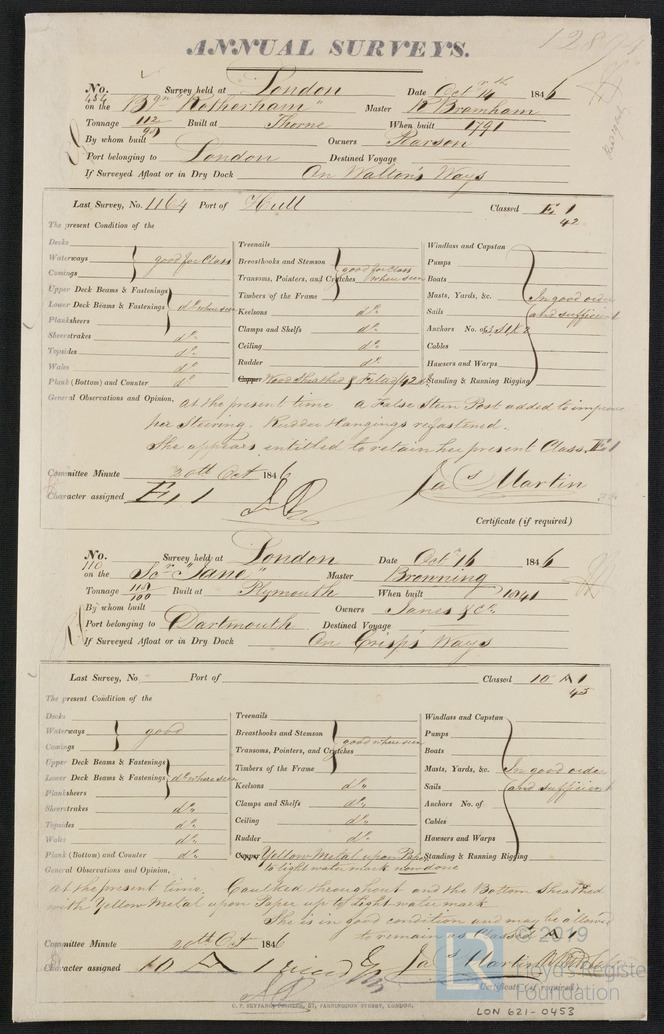 ANNUAL SURVEYS.
No. 484 Survey held at London Date Octr 14th 1846
on the Bgn "Rotherham" Master R Bramham
Tonnage 112/90 Built at Thorne When built 1791
By whom built Owners Rawson
Port belonging to London Destined Voyage
If Surveyed Afloat or in Dry Dock On Walton's Ways
Last Survey, No. 1164 Port of Hull Classed E 1 42
The present Condition of the
Decks
Waterways
Comings
good for Class
Upper Deck Beams & Fastenings
Lower Deck Beams & Fastenings
Planksheers
do when seen
Sheerstrakes do
Topsides do
Wales do
Plank (Bottom) and Counter do
Treenails
Breasthooks and Stemson
Transoms, Pointers, and Crutches
Timbers of the Frame
good for Class when seen
Keelsons do
Clamps and Shelfs do
Ceiling do
Rudder do
Copper Wood Sheathed & Felted /42
Windlass and Capstan
Pumps
Boats
Masts, Yards, &c.
Sails
Anchors No. of 3 St & 2
Cables
Hawsers and Warps
Standing & Running Rigging
In good order and sufficient
General Observations and Opinion, at the present time a False Stern Post added to improve
her Steering. Rudder Hangings refastened.
She appears entitled to retain her present Class. E 1
Committee Minute 20th Oct 1846
Character assigned E 1 Jas Martin
Certificate (if required)
No. 110 Survey held at London Date Octr 16 1846
on the Sr "Jane" Master Browning
Tonnage 118/100 Built at Plymouth When built 1841
By whom built Owners Janes & Co.
Port belonging to Dartmouth Destined Voyage
If Surveyed Afloat or in Dry Dock On Crisp's Ways
Last Survey, No Port of Classed 10 A 1 45
The present Condition of the
Decks
Waterways
Comings
good
Upper Deck Beams & Fastenings
Lower Deck Beams & Fastenings
Planksheers
do where seen
Sheerstrakes do
Topsides do
Wales do
Plank (Bottom) and Counter do
Treenails
Breasthooks and Stemson
Transoms, Pointers, and Crutches
Timbers of the Frame
good where seen
Keelsons do
Clamps and Shelfs do
Ceiling do
Rudder do
Copper Yellow Metal upon Paper
to light water mark now done
Windlass and Capstan
Pumps
Boats
Masts, Yards, &c.
Sails
Anchors No. of
Cables
Hawsers and Warps
Standing & Running Rigging
In good order and sufficient
General Observations and Opinion,
at the present time. Caulked throughout and the Bottom Sheathed
with Yellow Metal upon Paper up to Light water mark
She is in good condition and may be allowed
to remain as Classed A 1
Committee Minute 20th Oct 1846
Character assigned 10 A 1 Jas Martin
Certificate (if required)
C. F. SEYFANG, PRINTER, 57, FARRINGDON STREET, LONDON.
© 2019
Lloyd's Register
Foundation
LON 621-0453